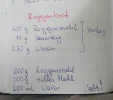 Roggenbrot
400 g Roggenmehl
10 g Sauerteig
250 g Wasser
Vorteig
200 g Roggenmehl
100 g helles Mehl
200 ml Wasser
Salz!